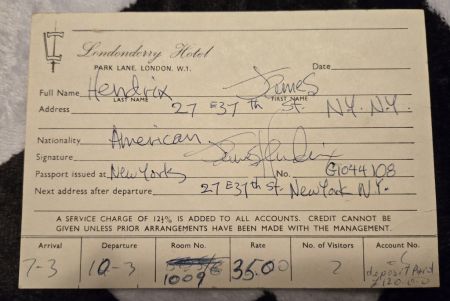 Londonderry Hotel
PARK LANE, LONDON, W.1.
Date
Full Name Hendrix James
LAST NAME FIRST NAME
Address 27 E 37 th St. N.Y. N.Y.
Nationality American
Signature James Hendrix
Passport issued at New Yorks No. G1044108
Next address after departure 27 E 37th St. New York N.Y.
A SERVICE CHARGE OF 12½% IS ADDED TO ALL ACCOUNTS. CREDIT CANNOT BE
GIVEN UNLESS PRIOR ARRANGEMENTS HAVE BEEN MADE WITH THE MANAGEMENT.
Arrival Departure Room No. Rate No. of Visitors Account No.
7-3 10-3 1009 35.00 2
deposit Paid
£120.00